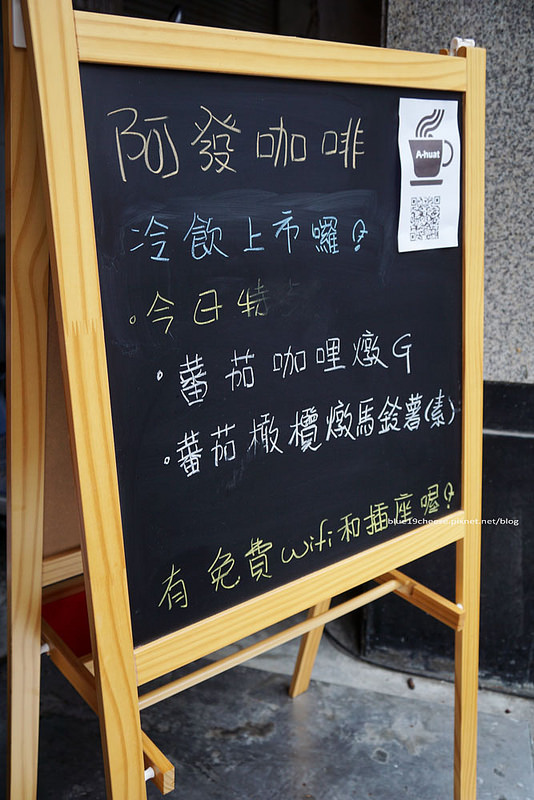 阿發咖啡
A-huat
冷飲上市囉!
。今日特
。蕃茄咖哩燉G
。蕃茄橄欖燉馬鈴薯(素)
有免費wifi和插座喔!
blue19cheese.pixnet.net/blog